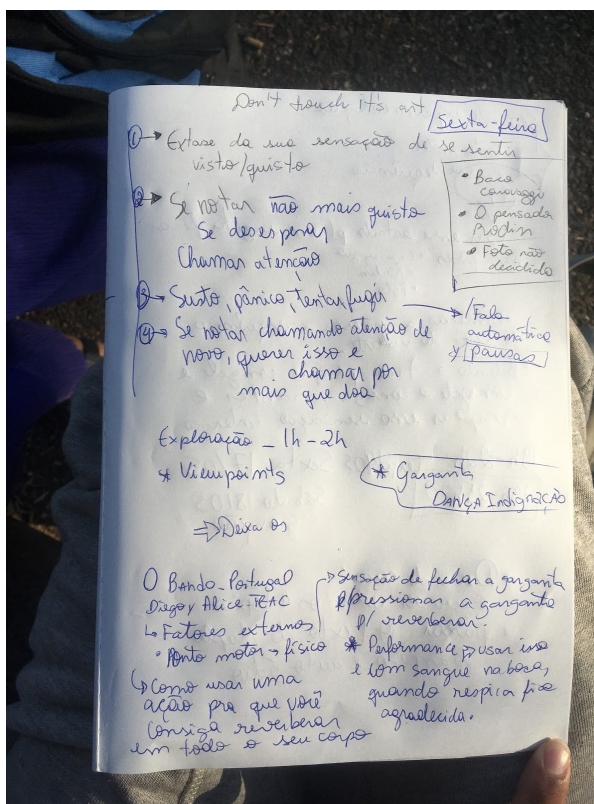 Don't touch it's art
Sexta-feira
① → Extase da sua sensação de se sentir
visto/quisto
• Baco
caravaggi
• O pensador
Rodin
• Foto não
decidida
② → Se notar não mais quisto
Se desesperar
Chamar atenção
③ → Susto, pânico, tentar fugir
④ → Se notar chamando atenção de
novo, querer isso e
chamar por
mais que doa
→ Fala
automática
y pausas
Exploração _ 1h - 2h
* Viewpoints
* Garganta
DANÇA Indignação
⇒ Deixa os
O Bando - Portugal
Diego y Alice - TEAC
↳ Fatores externos
• Ponto motor → físico
↳ Como usar uma
ação pra que você
consiga reverberar
em todo o seu corpo
→ Sensação de fechar a garganta
pressionar a garganta
p/ reverberar.
* Performance ⇒ usar isso
e com sangue na boca,
quando respira fica
agradecida.